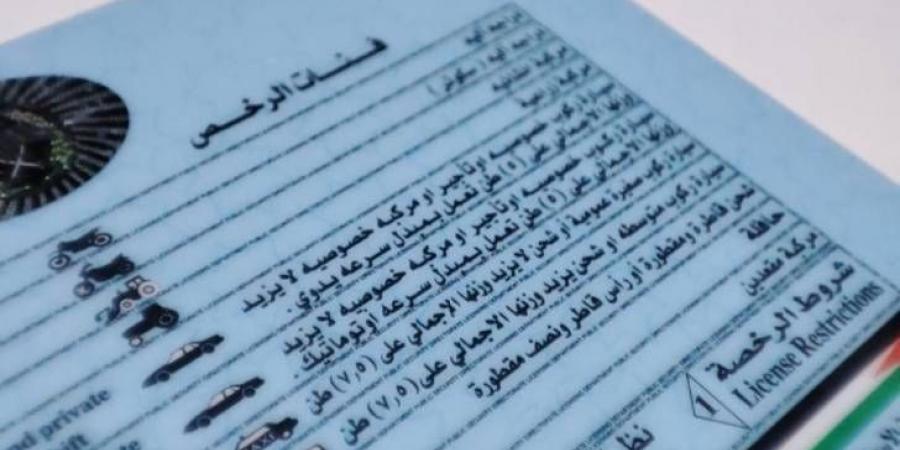 فئات الرخص
دراجة آلية
دراجة آلية ( سكوتر )
مركبة انشائية
مركبة زراعية
سيارة ركوب خصوصية او تأجير او مركبة خصوصية لا يزيد
وزنها الاجمالي على (٥) طن تعمل بمبدل سرعة يدوي
سيارة ركوب خصوصية او تأجير او مركبة خصوصية لا يزيد
وزنها الاجمالي على (٥) طن تعمل بمبدل سرعة اوتوماتيك
سيارة ركوب صغيرة عمومية او شحن لا يزيد وزنها الاجمالي على (٧,٥) طن
سيارة ركوب متوسطة او شحن يزيد وزنها الاجمالي على (٧,٥) طن
شحن قاطرة ومقطورة او راس قاطر ونصف مقطورة
حافلة
مركبة مقعدين
شروط الرخصة
License Restrictions
1
nd private